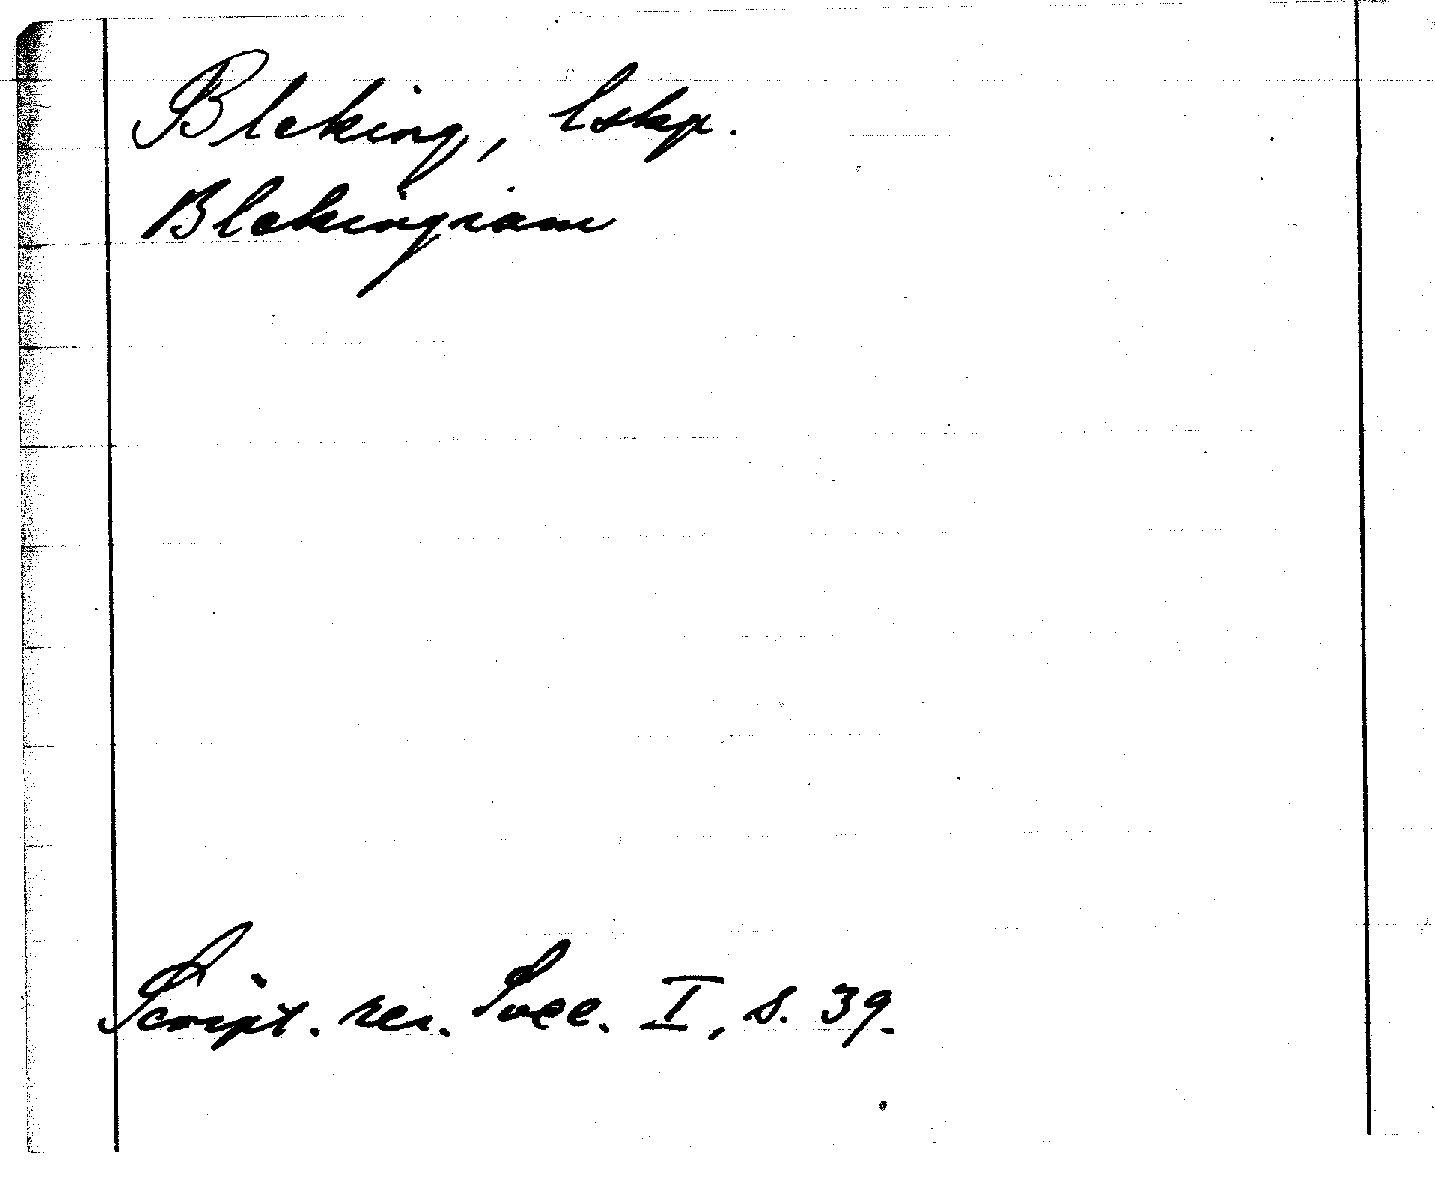 Bleking, lskp.
Blekingiam
Script. rer. Svec. I, s. 39.